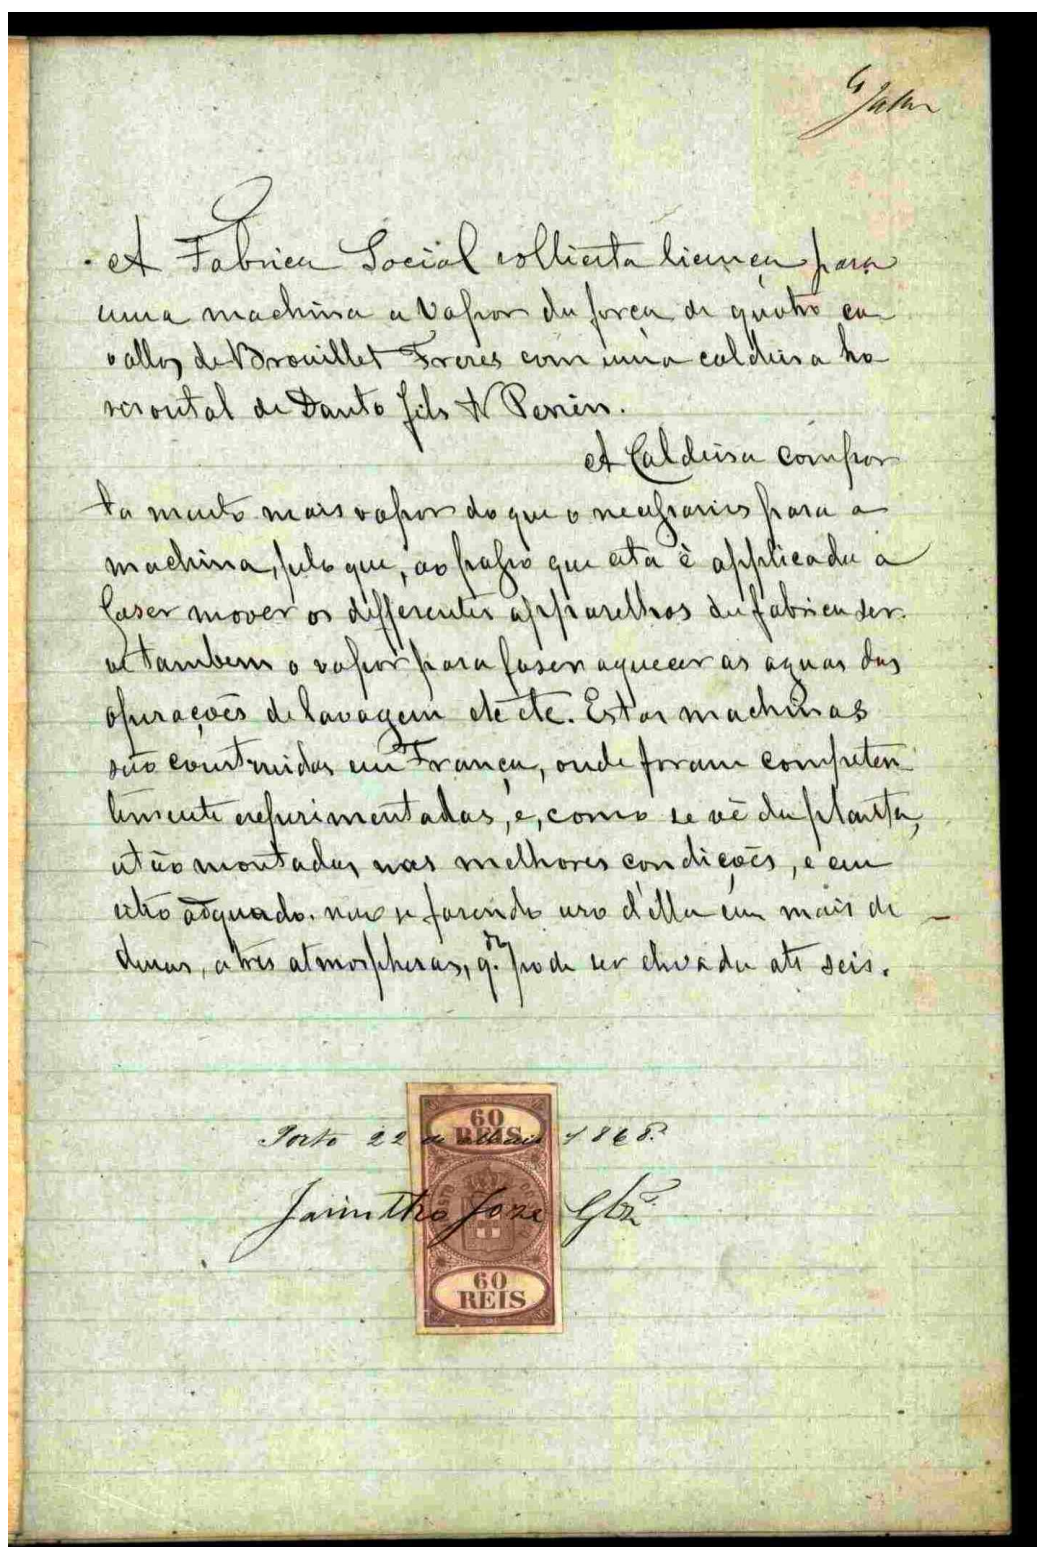 A Fabrica Social sollicita licença para
uma machina a vapor da força de quatro ca
vallos de Brouillet Freres com uma caldeira ho
risontal de Danto fils & Perrin.
A Caldeira compor
ta muito mais vapor do que o necessario para a
machina, pelo que, ao passo que esta è applicada a
faser mover os differentes apparelhos da fabrica ser
ve tambem o vapor para faser aquecer as aguas das
operações de lavagem etc etc. Estas machinas
são construidas em França, onde foram competen
temente experimentadas, e, como se vê da planta,
estão montadas nas melhores condições, e em
sitio adquado. não se fasendo uso d'ella em mais de
duas, a tres atmospheras, q. pode ser elevada até seis.
60
REIS
Porto 22 de Maio 1868.
Jacintho Joze
60
REIS